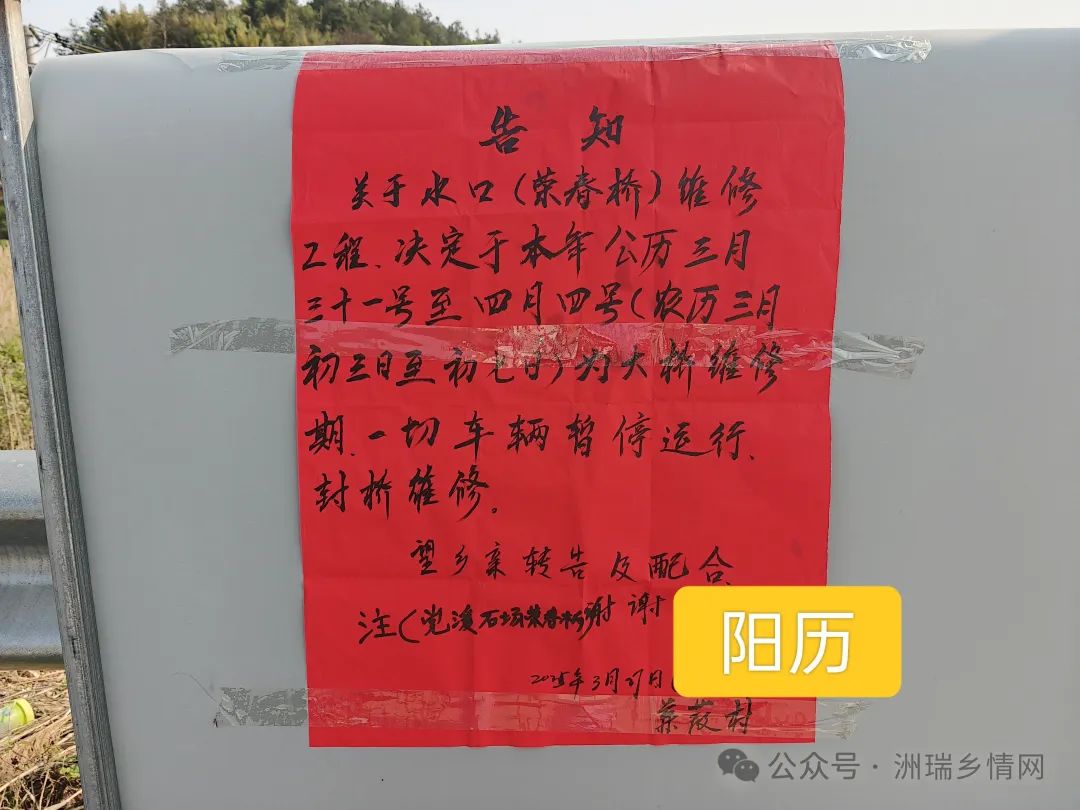 告知
关于水口(荣春桥)维修
工程、决定于本年公历三月
三十一号至四月四号(农历三月
初三日至初七日)为大桥维修
期、一切车辆暂停运行、
封桥维修。
望乡亲转告及配合
注( 石场荣春桥)谢谢
阳历
2025年3月27日
村
公众号·洲瑞乡情网